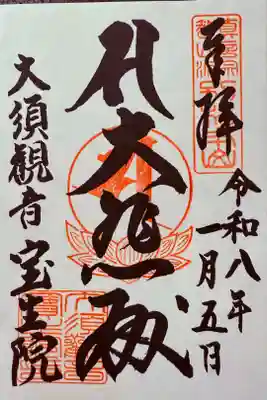 奉拝
令和八年
一月五日
大悲殿
大須観音 宝生院